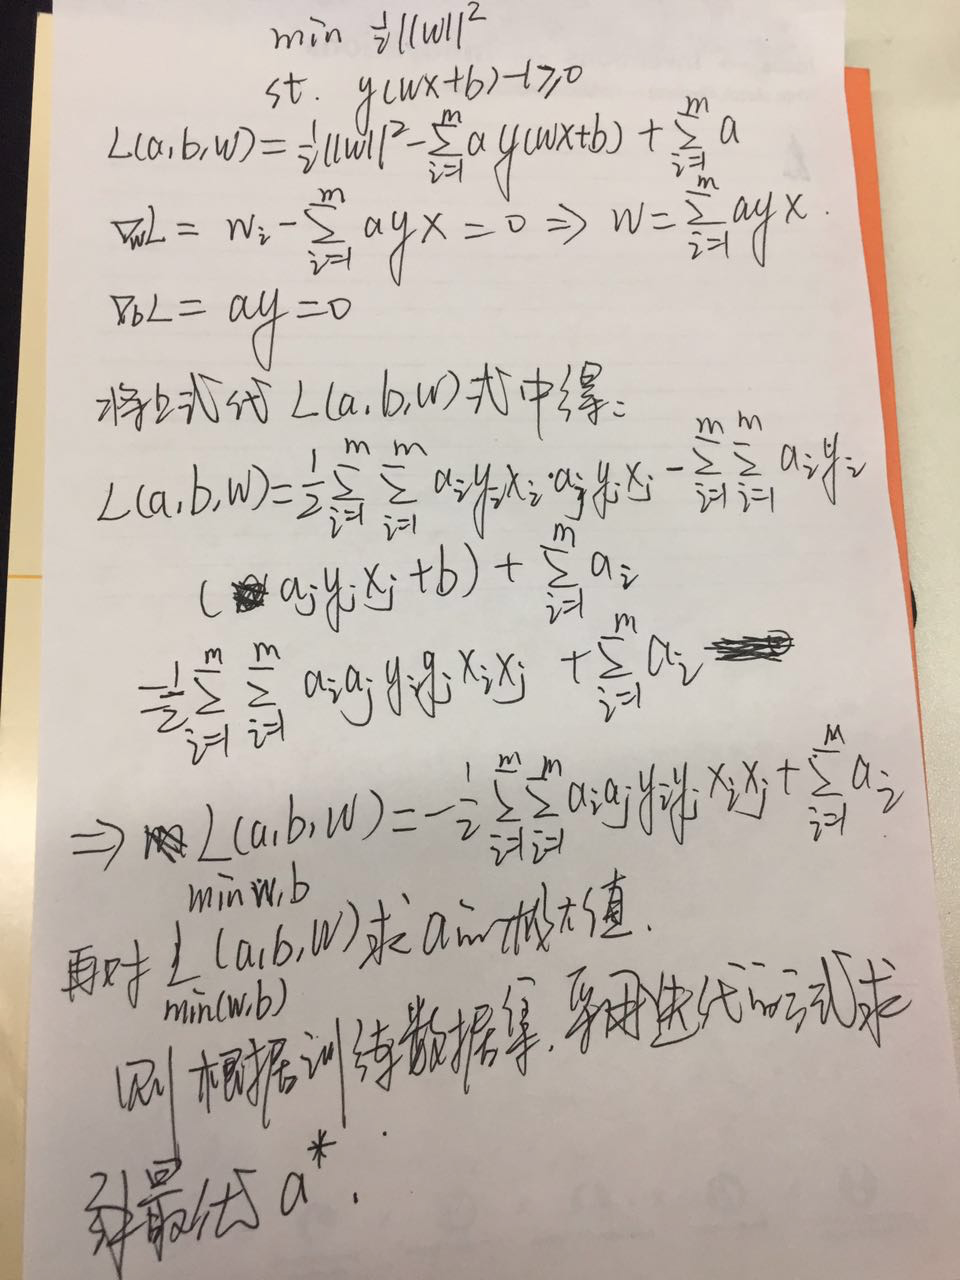 min ½||w||²
st. y(wx+b)-1≥0
L(a,b,w)=½||w||²-∑_{i=1}^{m} a y(wx+b) + ∑_{i=1}^{m} a
∇_wL = w_i - ∑_{i=1}^{m} a y x = 0 ⇒ w = ∑_{i=1}^{m} a y x.
∇_bL = ay = 0
将上式代 L(a,b,w) 式中得:
L(a,b,w)=½∑_{i=1}^{m}∑_{i=1}^{m} a_i y_i x_i · a_j y_j x_j - ∑_{i=1}^{m}∑_{i=1}^{m} a_i y_i
( a_j y_j x_j + b) + ∑_{i=1}^{m} a_i
=-½∑_{i=1}^{m}∑_{i=1}^{m} a_i a_j y_i y_j x_i x_j + ∑_{i=1}^{m} a_i
⇒ L(a,b,w) = -½∑_{i=1}^{m}∑_{i=1}^{m} a_i a_j y_i y_j x_i x_j + ∑_{i=1}^{m} a_i
min w,b
再对 L(a,b,w) 求 a的极大值.
min(w,b)
则根据训练数据集,采用迭代的方式求
到最优 a*.